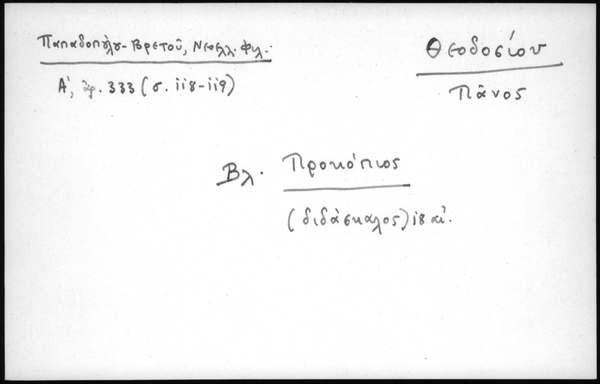 Παπαδοπούλου-Βρετοῦ, Νεοελλ. Φιλ.
Α΄, ἀρ. 333 (σ. 118-119)
Θεοδοσίου
Πᾶνος
Βλ. Προκόπιος
(διδάσκαλος) 18 αἰ.